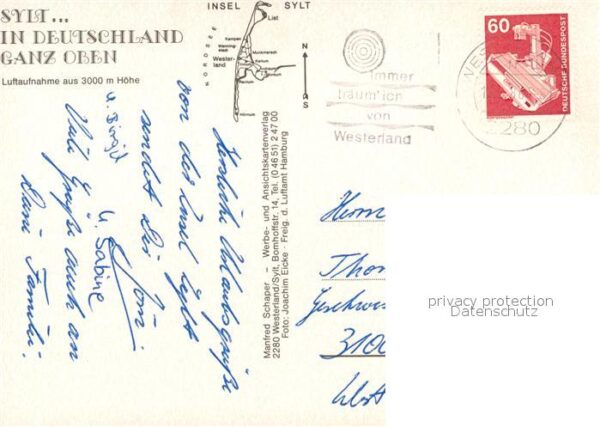 SYLT...
IN DEUTSCHLAND
GANZ OBEN
Luftaufnahme aus 3000 m Höhe
INSEL SYLT
NORDSEE
List
Kampen
Wester-
land
N
S
Herzliche Urlaubsgrüße
von der Insel Sylt
sendet Dir
u. Sabine
u. Birgit
Viele Grüße auch an
Deine Familie.
Manfred Schaper – Werbe- und Ansichtskartenverlag
2280 Westerland/Sylt, Bomhoffstr. 14, Tel. (0 46 51) 2 47 00
Foto: Joachim Eicke · Freig. d. Luftamt Hamburg
immer
träum' ich
von
Westerland
2280
60
DEUTSCHE BUNDESPOST
Herrn
Thom
Geschwis
3100
privacy protection
Datenschutz